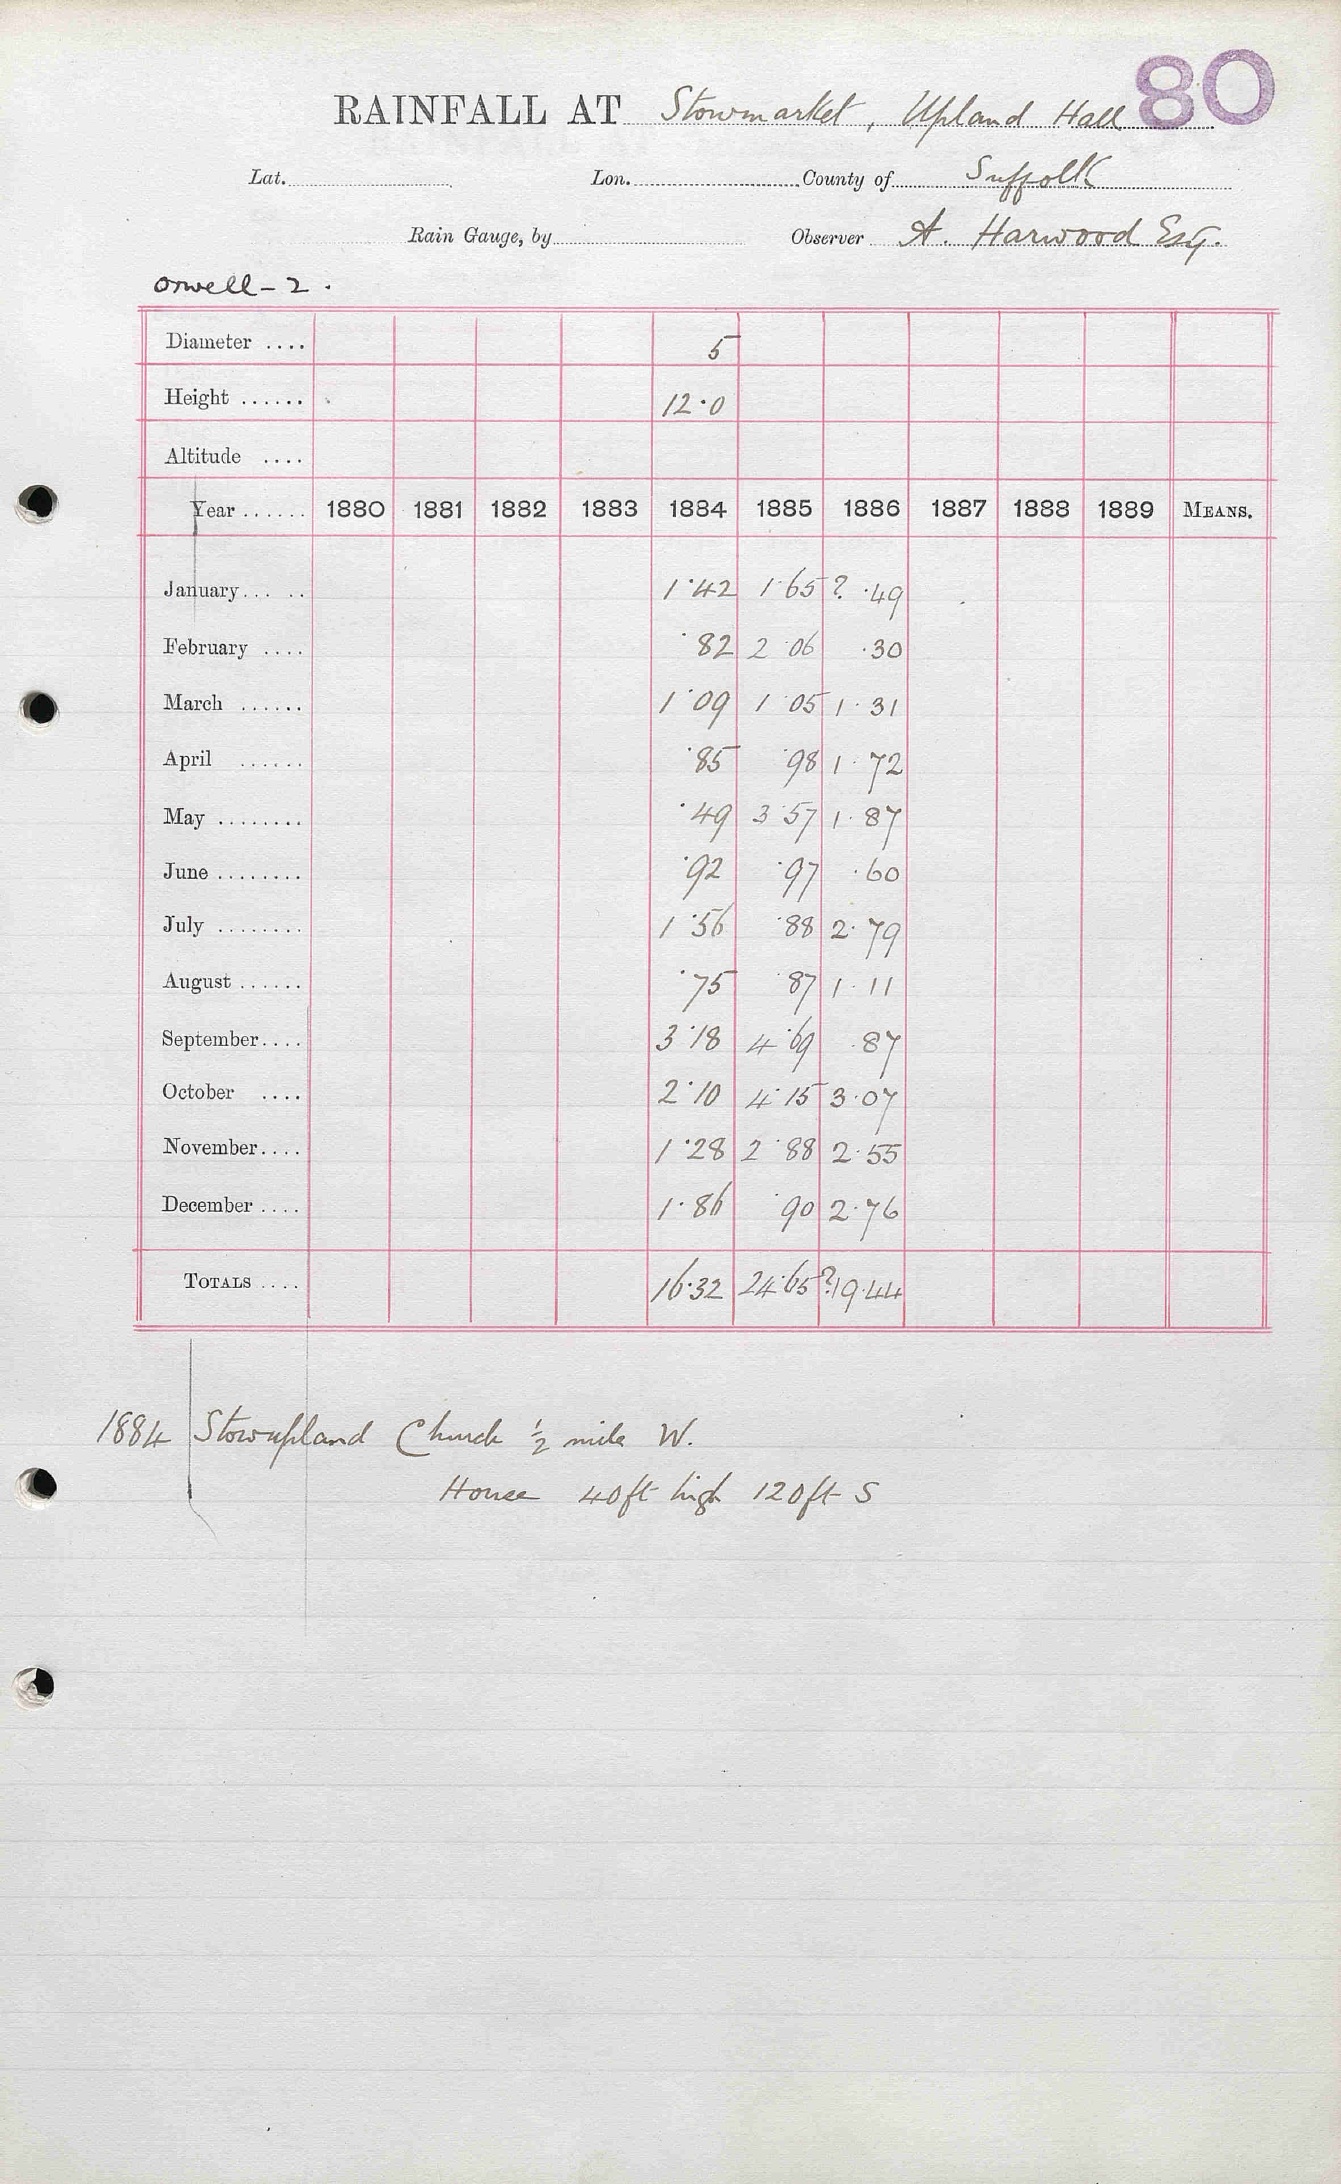 80
RAINFALL AT Stowmarket, Upland Hall
Lat. Lon. County of Suffolk
Rain Gauge, by Observer A. Harwood Esq.
Orwell - 2.
Diameter .... 5
Height ...... 12.0
Altitude ....
Year ...... 1880 1881 1882 1883 1884 1885 1886 1887 1888 1889 MEANS.
January ... .. 1.42 1.65 ? .49
February .... .82 2.06 .30
March ...... 1.09 1.05 1.31
April ...... .85 .98 1.72
May ........ .49 3.57 1.87
June ........ .92 .97 .60
July ........ 1.56 .88 2.79
August ...... .75 .87 1.11
September .... 3.18 4.69 .87
October .... 2.10 4.15 3.07
November .... 1.28 2.88 2.55
December .... 1.86 .90 2.76
TOTALS .... 16.32 24.65 ?19.44
1884 Stowupland Church ½ mile W.
House 40ft high 120ft S